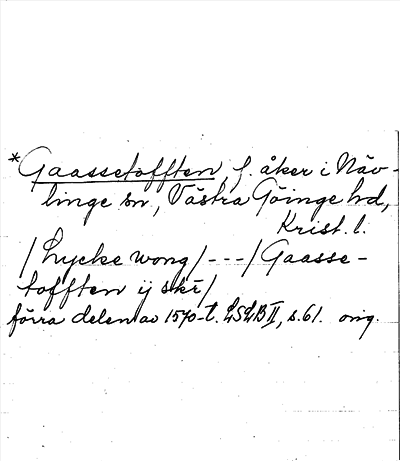 *Gaassetofften, f. åker i Näv-
linge sn, Västra Göinge hd,
Krist. l.
/Lycke wong/---/Gaasse-
tofften ij skē/
förra delen av 1570-t. LSLB II, s. 61. orig.